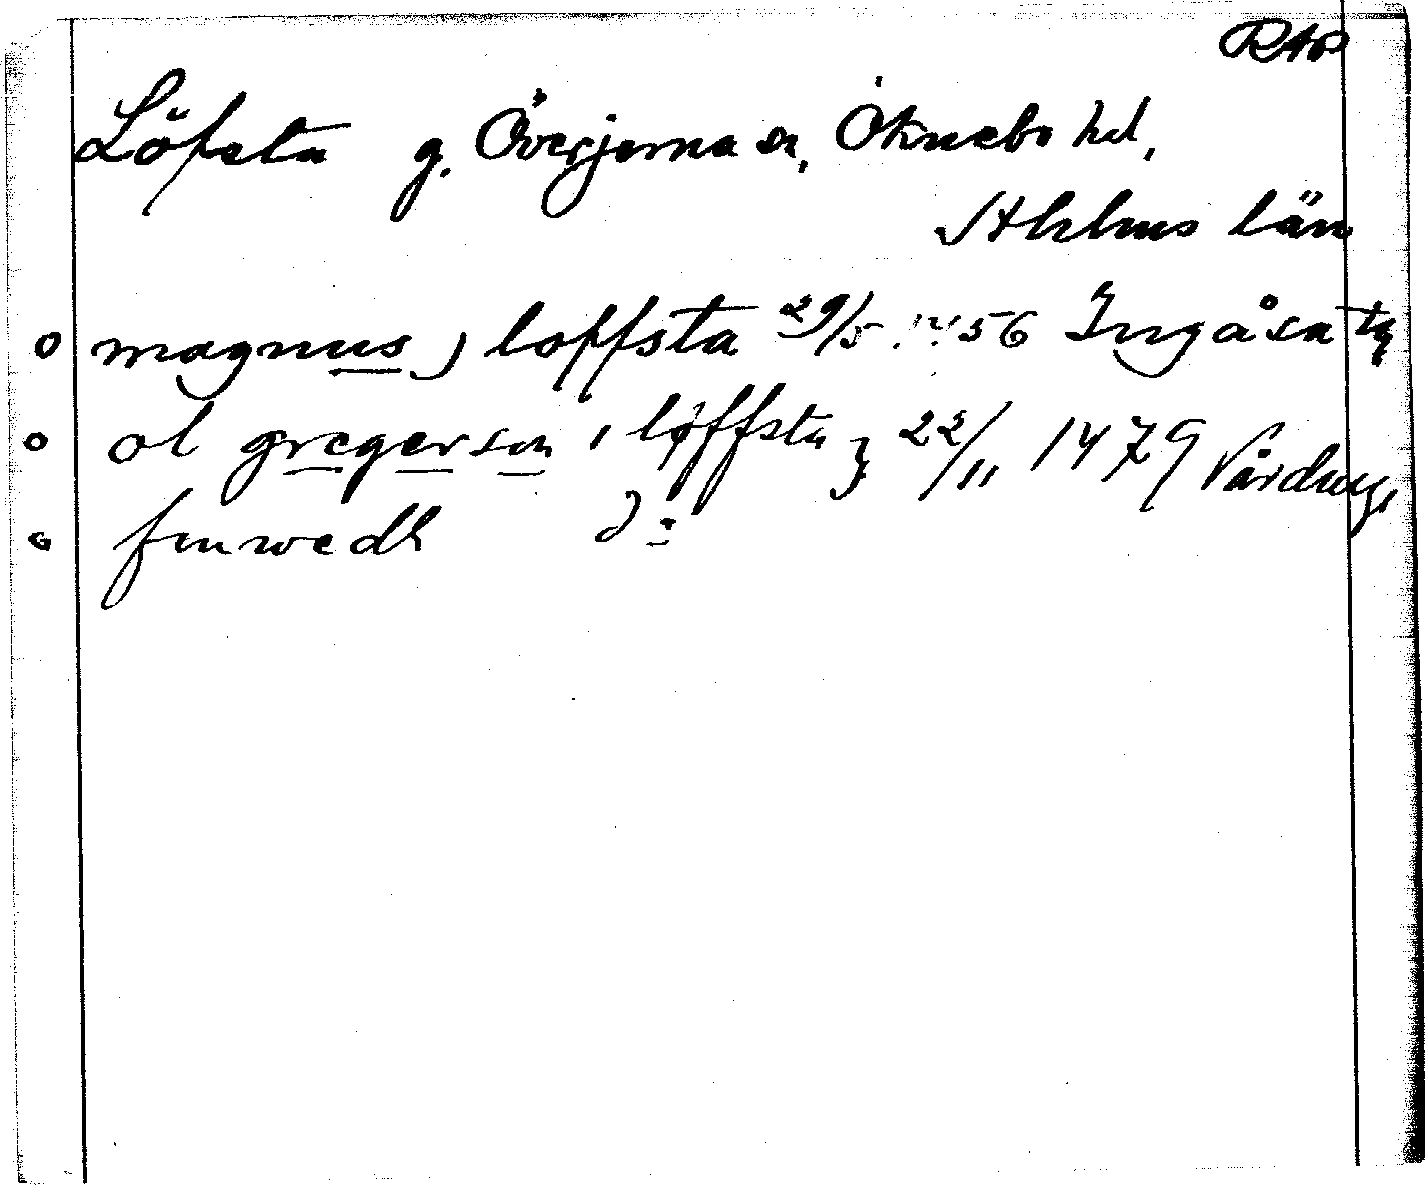 RAP
Löfsta g. Överjerna sn, Öknebo hd,
Sthlms län
o magnus j loffsta 29/5 1456 Ingåsa tg
o ol gregerson i løffsta 22/11 1479 Vårdinge
o finwedh d:o